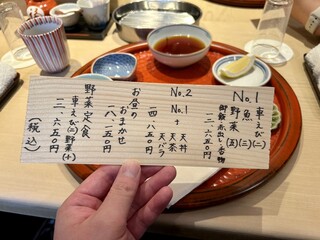 No.1
車えび(二)
魚(三)
野菜(五)
御飯・赤出し・香物
一二、六五〇円
No.2
No.1
+
天丼
天茶
天バラ
一四、八五〇円
お昼の
おまかせ
一八、一五〇円
野菜定食
車えび(二)野菜(十)
一二、六五〇円
(税込)